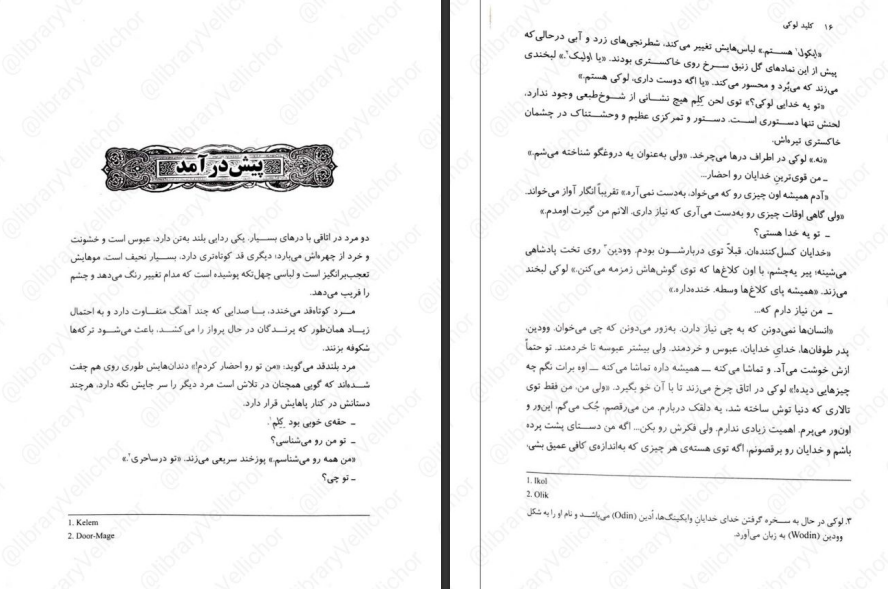 پیش‌درآمد
دو مرد در اتاقی با درهای بسیار. یکی ردایی بلند به‌تن دارد، عبوس است و خشونت
و خرد از چهره‌اش می‌بارد؛ دیگری قد کوتاه‌تری دارد، بسیار نحیف است. موهایش
تعجب‌برانگیز است و لباسی چهل‌تکه پوشیده است که مدام تغییر رنگ می‌دهد و چشم
را فریب می‌دهد.
مرد کوتاه‌قد می‌خندد، با صدایی که چند آهنگ متفاوت دارد و به احتمال
زیاد همان‌طور که پرندگان در حال پرواز را می‌کشد، باعث می‌شود ترکه‌ها
شکوفه بزنند.
مرد بلندقد می‌گوید: «من تو رو احضار کردم!» دندان‌هایش طوری روی هم چفت
شده‌اند که گویی همچنان در تلاش است مرد دیگر را سر جایش نگه دارد، هرچند
دستانش در کنار پاهایش قرار دارد.
ـ حقه‌ی خوبی بود کِلِم¹.
ـ تو من رو می‌شناسی؟
«من همه رو می‌شناسم.» پوزخند سریعی می‌زند. «تو درساحری².»
ـ تو چی؟
1. Kelem
2. Door-Mage
۱۶ کلید لوکی
«ایکول¹ هستم.» لباس‌هایش تغییر می‌کند، شطرنجی‌های زرد و آبی درحالی‌که
پیش از این نمادهای گل زنبق سرخ روی خاکستری بودند. «یا اولیک².» لبخندی
می‌زند که می‌بُرد و محسور می‌کند. «یا اگه دوست داری، لوکی هستم.»
«تو یه خدایی لوکی؟» توی لحن کِلِم هیچ نشانی از شوخ‌طبعی وجود ندارد،
لحنش تنها دستوری است. دستور و تمرکزی عظیم و وحشتناک در چشمان
خاکستری تیره‌اش.
«نه.» لوکی در اطراف درها می‌چرخد. «ولی به‌عنوان یه دروغگو شناخته می‌شم.»
ـ من قوی‌ترین خدایان رو احضار...
«آدم همیشه اون چیزی رو که می‌خواد، به‌دست نمی‌آره.» تقریباً انگار آواز می‌خواند.
«ولی گاهی اوقات چیزی رو به‌دست می‌آری که نیاز داری. الانم من گیرت اومدم.»
ـ تو یه خدا هستی؟
«خدایان کسل‌کننده‌ان. قبلاً توی دربارشون بودم. وودین³ روی تخت پادشاهی
می‌شینه؛ پیر یه‌چشم، با اون کلاغ‌ها که توی گوش‌هاش زمزمه می‌کنن.» لوکی لبخند
می‌زند. «همیشه پای کلاغ‌ها وسطه. خنده‌داره.»
ـ من نیاز دارم که...
«انسان‌ها نمی‌دونن که به چی نیاز دارن. به‌زور می‌دونن که چی می‌خوان. وودین،
پدر طوفان‌ها، خدایِ خدایان، عبوس و خردمند. ولی بیشتر عبوسه تا خردمند. تو حتماً
ازش خوشت می‌آد. و تماشا می‌کنه ـــ همیشه داره تماشا می‌کنه ـــ اوه برات نگم چه
چیزهایی دیده!» لوکی در اتاق چرخ می‌زند تا با آن خو بگیرد. «ولی من، من فقط توی
تالاری که دنیا توش ساخته شد، یه دلقک دربارم. من می‌رقصم، جُک می‌گم، این‌ور و
اون‌ور می‌پرم. اهمیت زیادی ندارم. ولی فکرش رو بکن... اگه من دستای پشت پرده
باشم و خدایان رو برقصونم، اگه توی هسته‌ی هر چیزی که به‌اندازه‌ی کافی عمیق بشی،
1. Ikol
2. Olik
۳. لوکی در حال به سخره گرفتن خدای خدایانِ وایکینگ‌ها، اُدین (Odin) می‌باشد و نام او را به شکل
وودین (Wodin) به زبان می‌آورد.
@libraryVellichor